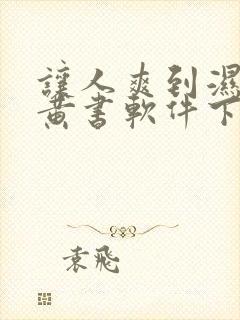 讓人爽到濕
黃書軟件下
袁飛